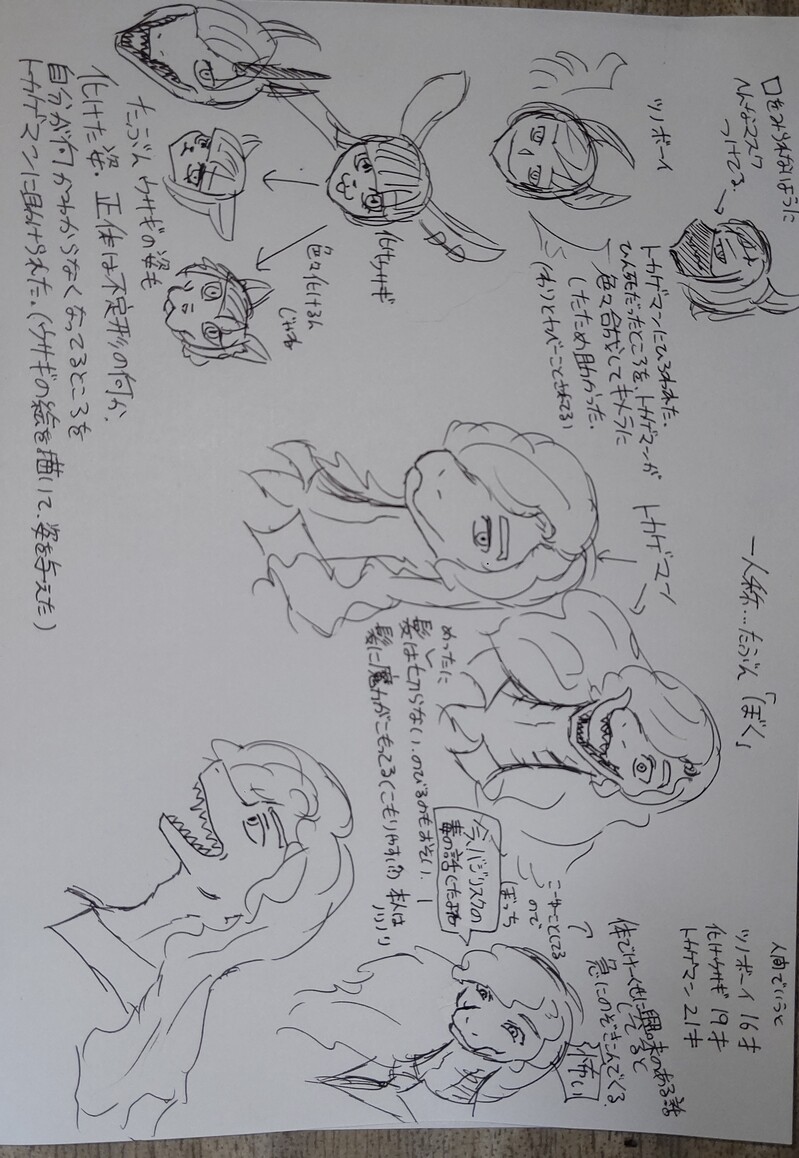 口をみられないように
へんなマスク
つけてる。
ツノボーイ
トカゲマンにひろわれた。
ひん死だったところを、トカゲマンが
色々合成してキメラに
したため助かった。
(わりとヤバいことされてる)
化けウサギ
色々化けるん
じゃね
たぶんウサギの姿も
化けた姿。正体は不定形の何か。
自分が何かわからなくなってるところを
トカゲマンに助けられた。(ウサギの絵を描いて、姿を与えた)
一人称…たぶん「ぼく」
トカゲマン
めったに
髪は切らない。のびるのもおそい。
髪に魔力がこもってる(こもりやすい?)本人は
ノリノリ
人間でいうと
ツノボーイ 16才
化けウサギ 19才
トカゲマン 21才
興味のある話
してると
急にのぞきこんでくる。
怖い
こーゆーことしてる
ので
ぼっち
今、バジリスクの
事の話してたよね